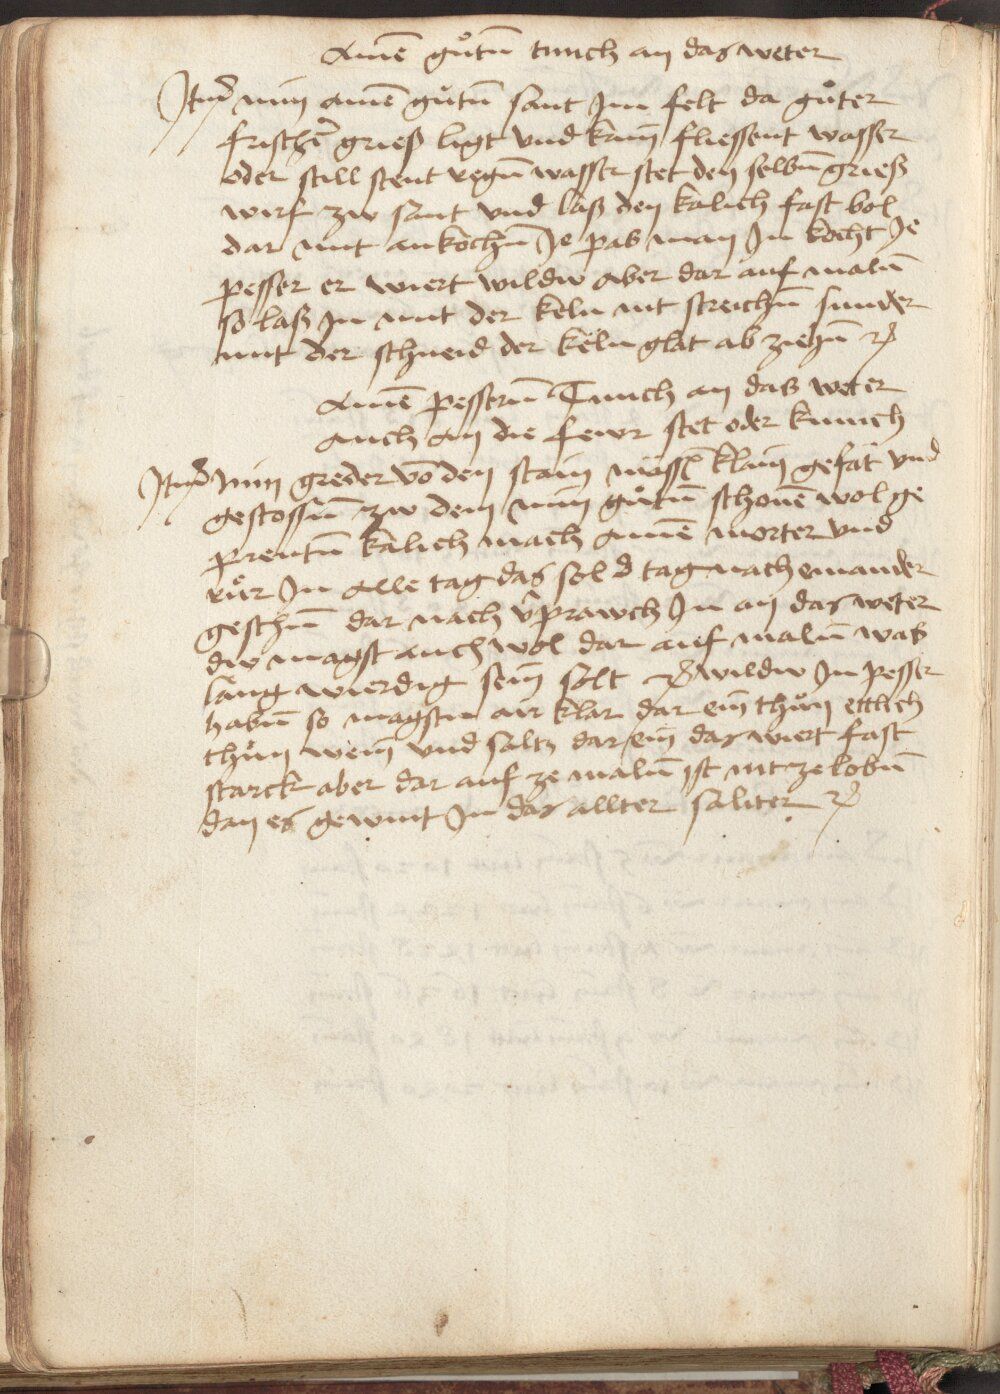 Ainē gůtn̄ tunch an das weter
Itm̄ nim ainē gůtn̄ sant Jm felt da gůter
frischer̄ grieß ligt vnd kain fliessent wasser
oder still stent regn̄ wasser stet den selbn̄ grieß
wirf zw sant vnd laß den kalich fast bol
dar mit ankochn̄ Je paß man Jn kocht Je
pesser er wiert wildw aber dar auf maln̄
so laß Jn mit der keln nit streichn̄ sunder
mit der schneid der keln glat ab ziehn̄
Ainē pessern̄ Tunch an daß weter
auch an die fewr stet oder kunich
Itm̄ nim greder vō den stain klain gefät vnd
gestossn̄ zw dem nim gůtn̄ schonē wol ge
prentn̄ kalich mach ainē morter vnd
růr Jn alle tag das sol d tag nach einander
geschn̄ dar nach v̄prawch Jn an das weter
dw magst auch wol dar auf maln̄ waß
lang wierdig sein solt wildw Jn pesser
habn̄ so magstu air klar dar ein thůn ettlich
thůn wein vnd saltz dar ein das wiert fast
starck aber dar auf ze maln̄ ist nit ze lobn̄
dan es gewint Jn das allter saliter